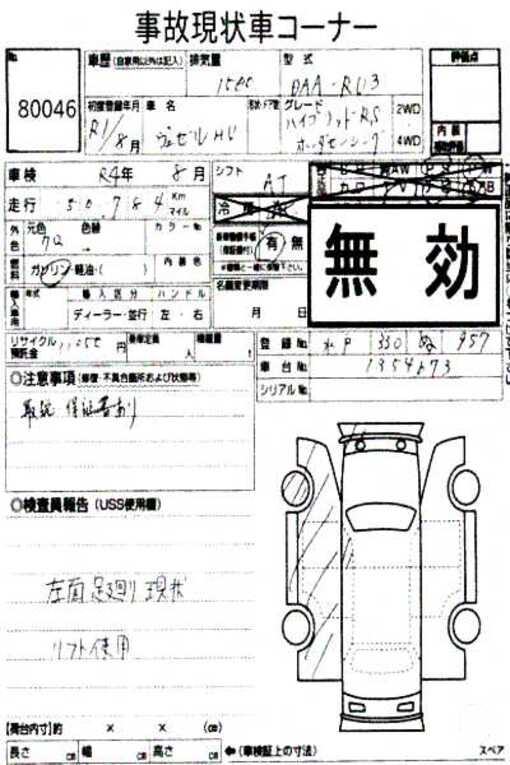 事故現状車コーナー
No.
80046
車歴(自家用以外は記入) 排気量 型式
1500 DAA-RU3
評価点
初度登録年月 車名 形状・ドア数 グレード
R1/8月 ヴェゼルHV ハイブリッドRS
ホンダセンシング
2WD
4WD
内装
車検 R4年 8月 シフト AT
走行 50,784 Km
マイル
外色 元色 色替 カラーNo.
有 無
燃料 ガソリン・軽油・( ) 内装色
名義変更期限
月 日
無効
輸入車用 年式 輸入区分 ハンドル
ディーラー・並行 左・右
リサイクル預託金 円 乗車定員 人 積載量 t
登録No. 水戸 330 ぬ 957
車台No. 1354673
シリアルNo.
◎注意事項(修復・不具合箇所および状態等)
取説 保証書あり
◎検査員報告(USS使用欄)
左面足廻り現状
リフト使用
【荷台内寸】約 × × (cm)
長さ cm 幅 cm 高さ cm ←(車検証上の寸法) スペア